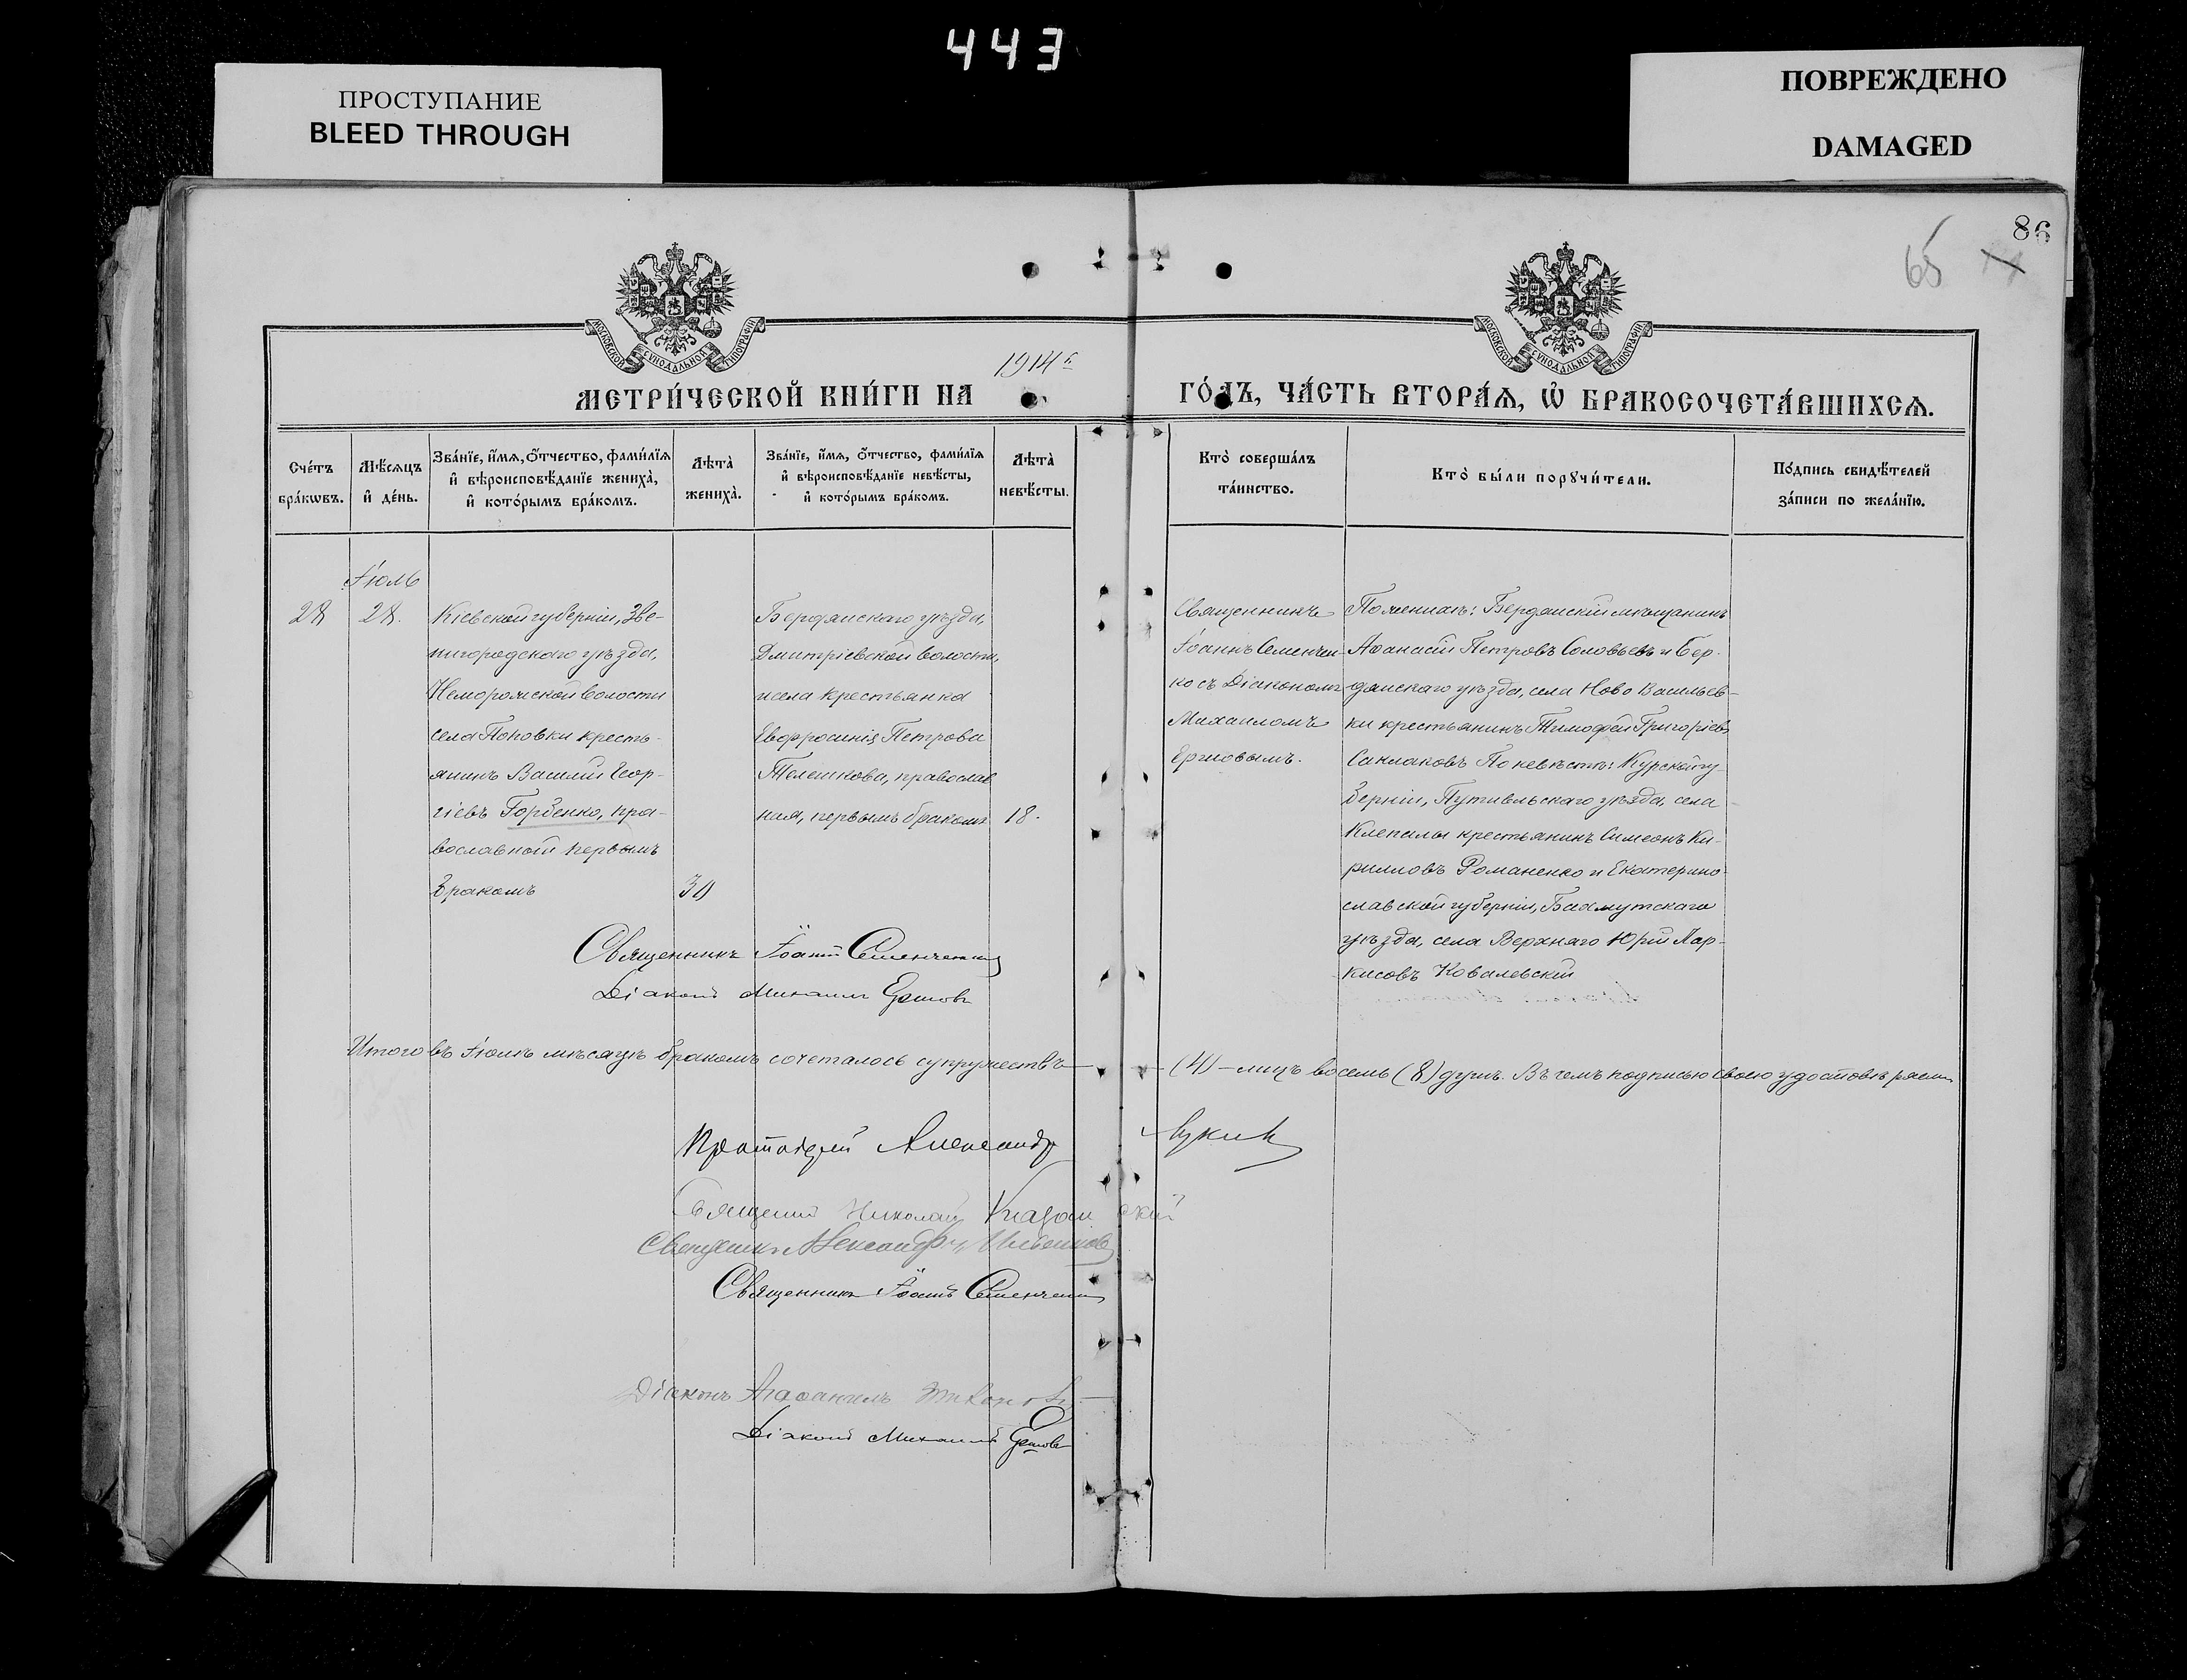 443
ПРОСТУПАНИЕ
BLEED THROUGH
ПОВРЕЖДЕНО
DAMAGED
86
65
МОСКОВСКОЙ СѴНОДАЛЬНОЙ ТИПОГРАФІИ
МОСКОВСКОЙ СѴНОДАЛЬНОЙ ТИПОГРАФІИ
МЕТРИ́ЧЕСКОЙ КНИ́ГИ НА 1914 г. ГО́ДЪ, ЧА́СТЬ ВТОРА́Ѧ, Ѡ҆ БРАКОСОЧЕТА́ВШИХСѦ.
Сче́тъ
бра́кѡвъ.
Мѣ́сѧцъ
и҆ де́нь.
Зва́нїе, и҆́мѧ, ѻ҆́тчество, фами́лїѧ
и҆ вѣроисповѣ́данїе жениха̀,
и҆ кото́рымъ бра́комъ.
Лѣта̀
жениха̀.
Зва́нїе, и҆́мѧ, ѻ҆́тчество, фами́лїѧ
и҆ вѣроисповѣ́данїе невѣ́сты,
и҆ кото́рымъ бра́комъ.
Лѣта̀
невѣ́сты.
Кто̀ соверша́лъ
та́инство.
Кто̀ бы́ли порꙋчи́тели.
По́дпись свидѣ́телей
за́писи по жела́нїю.
Іюль
28
28.
Кіевской губерніи, Зве-
нигородскаго уѣзда,
Неморожской волости
села Поповки кресть-
янинъ Василій Геор-
гіевъ Горбенко, пра-
вославной первымъ
бракомъ
30
Бердянскаго уѣзда,
Дмитріевской волости,
и села крестьянка
Евфросинія Петрова
Телешкова, православ
ная, первымъ бракомъ
18.
Священникъ
Іоаннъ Семенчен-
ко съ Діакономъ
Михаиломъ
Ершовымъ.
По женихѣ: Бердянскій мѣщанинъ
Аѳанасій Петровъ Соловьевъ и Бер-
дянскаго уѣзда, села Ново Васильев-
ки крестьянинъ Тимофей Григоріевъ
Саклаковъ По невѣстѣ: Курской гу-
берніи, Путивльскаго уѣзда, села
Клепалы крестьянинъ Симеонъ Ки-
рилловъ Романенко и Екатерино-
славской губерніи, Бахмутскаго
уѣзда, села Верхняго Юрій Нар-
кисовъ Ковалевскій
Священникъ Іоаннъ Семенченко
Діаконъ Михаилъ Ершовъ
Итого въ Іюлѣ мѣсяцѣ бракомъ сочеталось супружествъ — (4) — лицъ восемь (8) душъ. Въ чемъ подписью своею удостовѣряемъ
Протоіерей Александръ Лукинъ
Священникъ Николай
Священникъ Александръ
Священникъ Іоаннъ Семенченко
Діаконъ Агаѳангелъ
Діаконъ Михаилъ Ершовъ